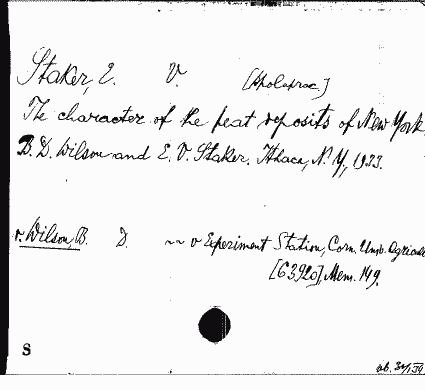 Staker, E. V.
The character of the peat deposits of New York,
B. D. Wilson and E. V. Staker. Ithaca, N. Y., 1933.
v. Wilson, B. D. ~~ v Experiment Station, Corn. Univ. Agricult
[63920], Mem. 149.
S